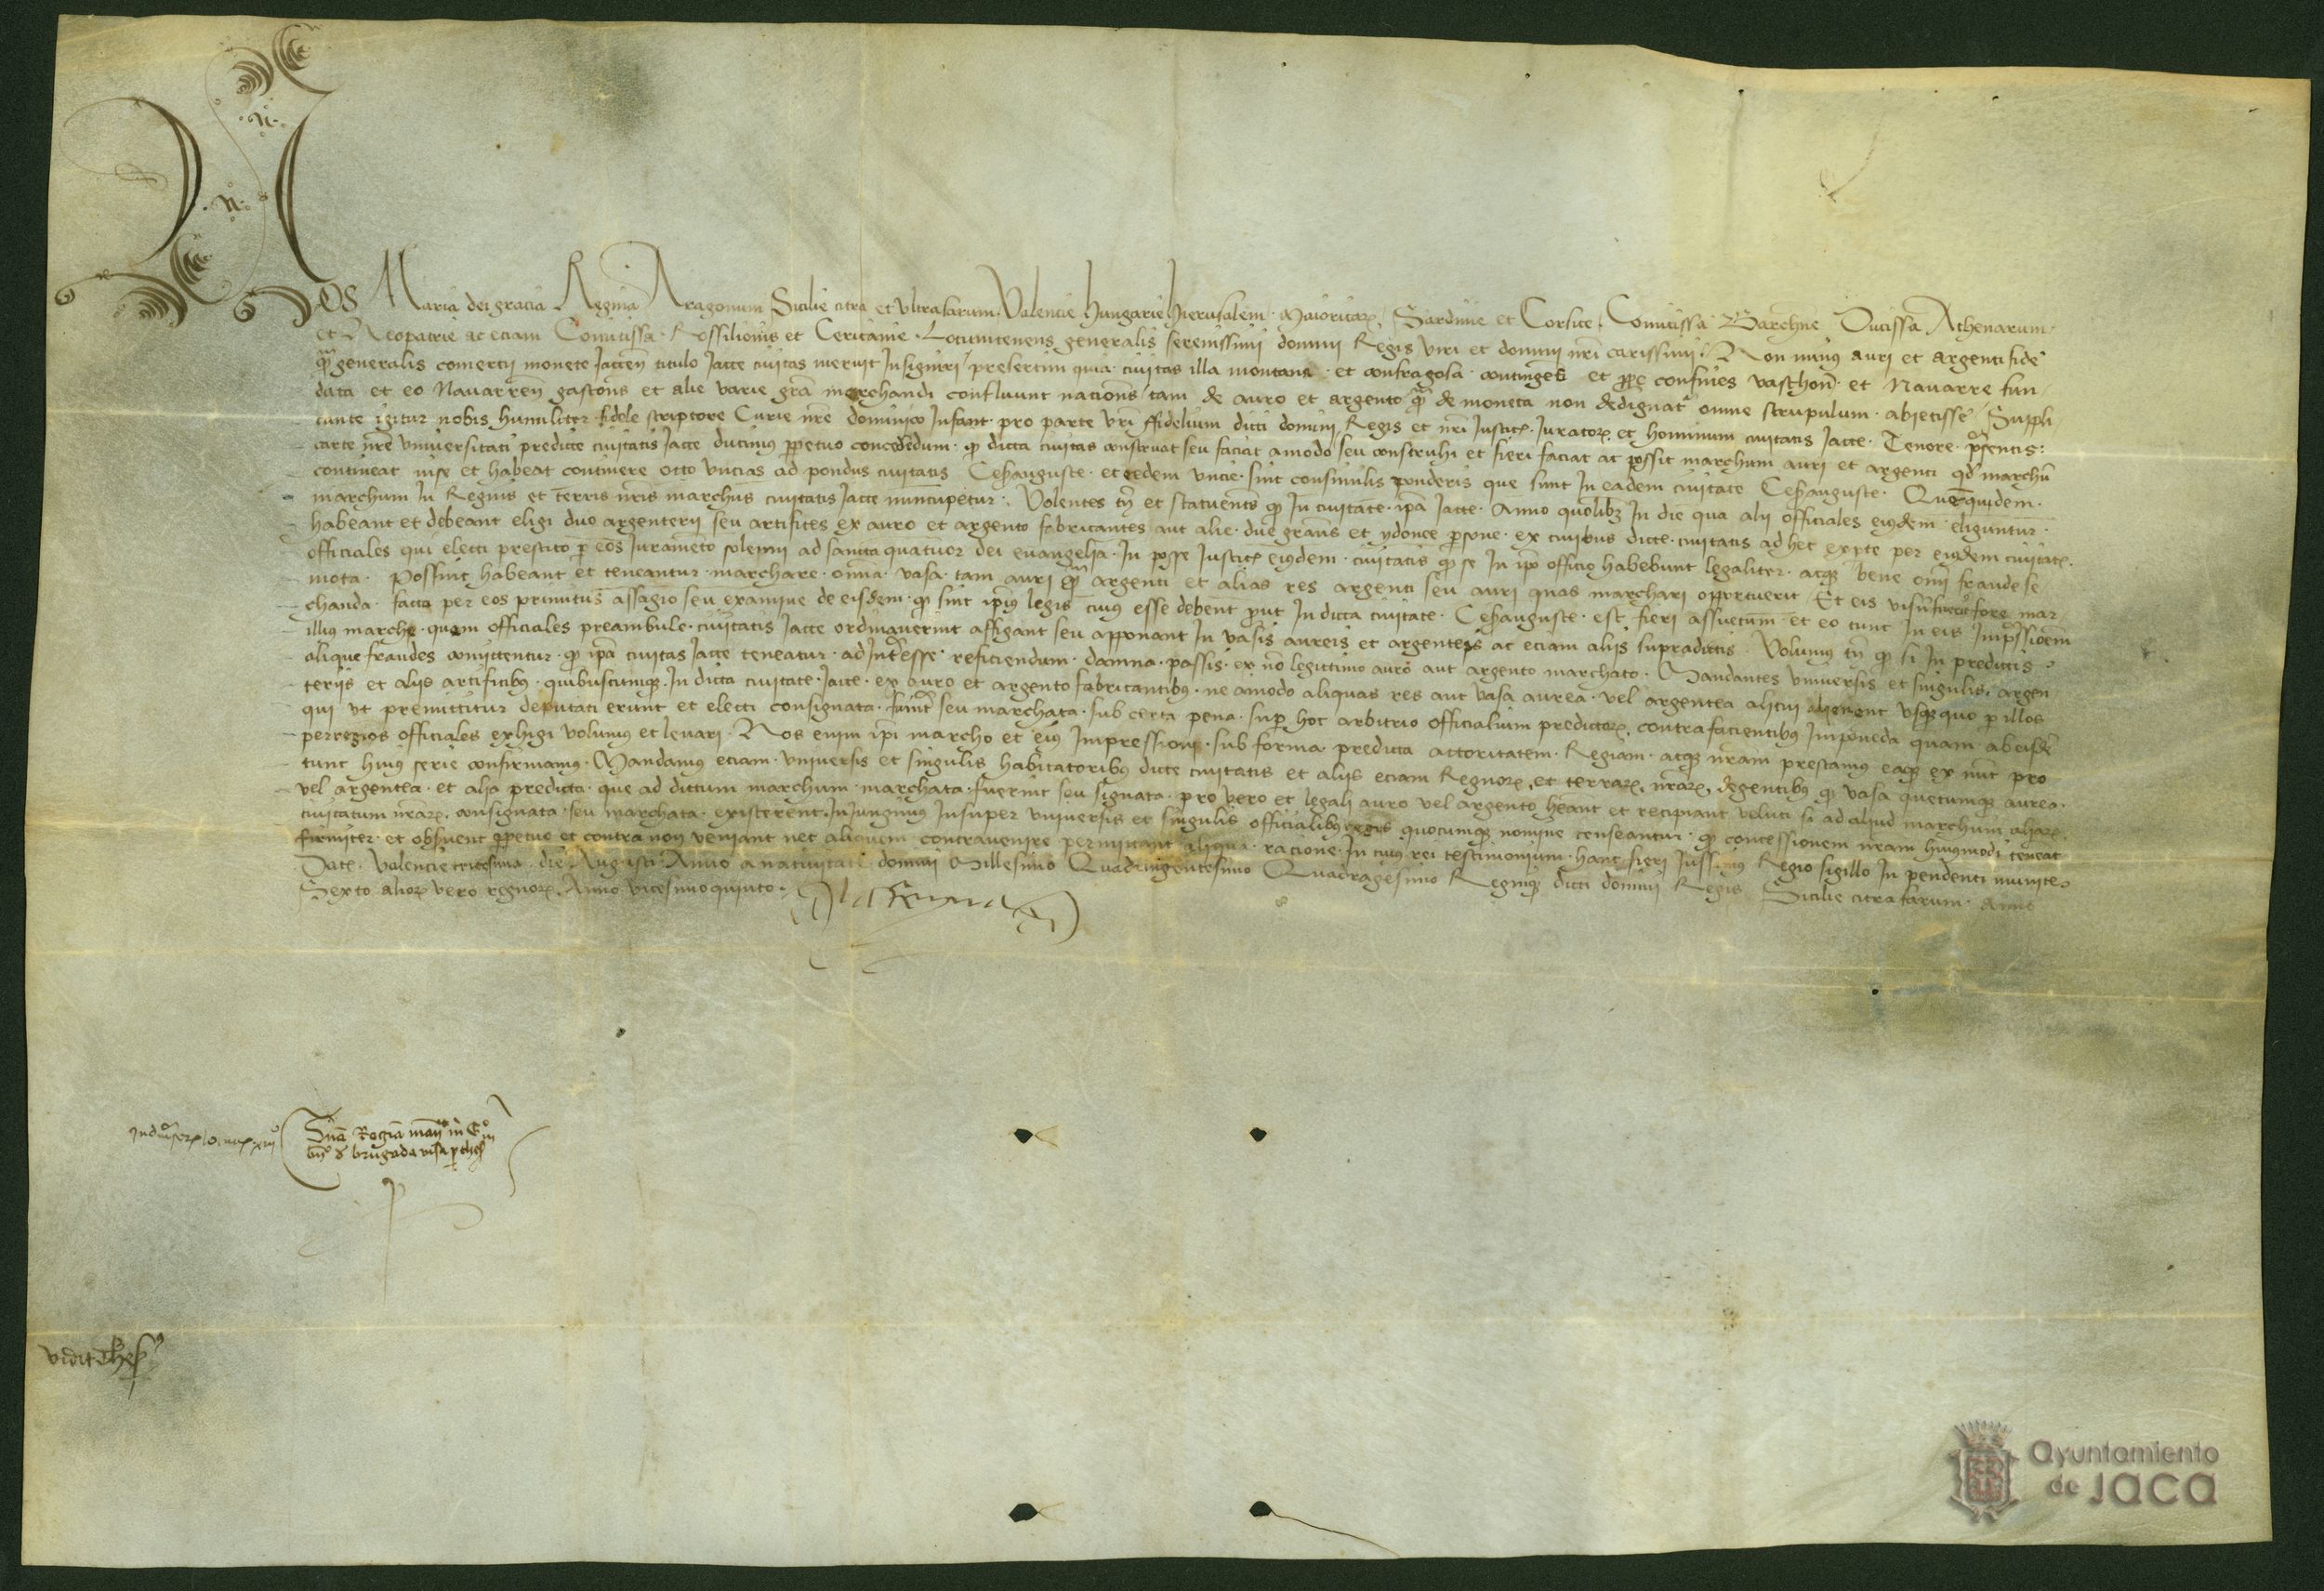 Nos Maria dei gracia Regina Aragonum Sicilie citra et ultra farum Valencie Hungarie Hierusalem Maioricar Sardinie et Corsice Comitissa Barchne Ducissa Athenarum
et Neopatrie ac eciam Comitissa Rossilionis et Ceritanie Locumtenens generalis serenissimi domini Regis viri et domini nri carissimi Non minus auri et argenti fide
qm generalis comercii monete Jaccen titulo Jacce civitas meruit Insigniri presertim quia civitas illa montana et confragosa et prope confines Vaschon et Navarre fun
data et eo Navarren gastons et alie varie gra merchandi confluunt nacions tam de auro et argento qm de moneta non dedignat omne scrupulum abiecisse Suppli
cante igitur nobis humiliter fidele scriptore Curie nre dominico Infant pro parte vri ffidelium dicti domini Regis et nri Justic Jurator et hominum civitatis Jacce Tenore psentis
carte nre universitati predicte civitatis Jacce ducimus ppetuo concedidum q dicta civitas construat seu faciat amodo seu construhi et fieri faciat ac possit marchum auri et argenti qd marchu
contineat in se et habeat continere octo uncias ad pondus civitatis Cesarauguste et eedem uncie sint consimilis ponderis que sunt In eadem civitate Cesarauguste Quequidem
marchum In Regnis et terris nris marchus civitatis Jacce nuncupetur Volentes tn et statuents q In civitate ipa Jacce Anno quolibz In die qua alii officiales eiusdem eliguntur
habeant et debeant eligi duo argenterii seu artifices ex auro et argento fabricantes aut alie due grans et ydonee psone ex civibus dicte civitatis ad hec expte per eiusdem civitatis
officiales qui electi prestito p eos Juramento solemni ad sancta quatuor dei evangelia In posse Justic eiusdem civitatis q se In ipo officio habebunt legaliter atq bene omi fraude se
mota Possint habeant et teneantur marchare omia vasa tam auri qm argenti et alias res argenti seu auri quas marchari opportuerit Et eis visu fuerit fore mar
chanda facto per eos primitus assagio seu examine de eisdem q sint ipius legis cuius esse debent put In dicta civitate Cesarauguste est fieri assuetum et eo tunc In eis Impssioem
illius marche quam officiales preambule civitatis Jacce ordinaverint affigant seu apponant In vasis aureis et argenteis ac eciam aliis supradictis Volumus tn q si In predictis
alique fraudes comittentur q ipa civitas Jacce teneatur ad Intesse reficiendum damna passis ex no legittimo auro aut argento marchato Mandantes universis et singulis argen
teriis et aliis artificibus quibuscumq In dicta civitate Jacce ex auro et argento fabricantibus ne amodo aliquas res aut vasa aurea vel argentea alicui alienent usq quo p illos
qui ut premittitur deputati erunt et electi consignata fuint seu marchata sub certa pena sup hoc arbitrio officialium predictor contrafacientibus Imponeda quam ab eisde
per regios officiales exhigi volumus et levari Nos enim ipi marcho et eius Impressioni sub forma predicta actoritatem Regiam atq nram prestamus eaq ex nunc pro
tunc huius serie confirmamus Mandamus eciam universis et singulis habitatoribus dicte civitatis et aliis eciam Regnor et terrar nrar degentibus q vasa quecumq aurea
vel argentea et alia predicta que ad dictum marchum marchata fuerint seu signata pro vero et legali auro vel argento heant et recipiant veluti si ad aliud marchum aliar
civitatum nrar consignata seu marchata existerent Iniungimus Insuper universis et singulis officialibus regiis quocumq nomine censeantur q concessionem nram huiusmodi teneat
firmiter et observent ppetuo et contra non veniant nec aliquem contravenire permittant aliqua racione In cuius rei testimonium hanc fieri Jussimus Regio sigillo In pendenti munite
Date Valencie tricesima die Augusti Anno a nativitate domini Millesimo Quadringentesimo Quadragesimo Regniq dicti domini Regis Sicilie citra farum Anno
Sexto alior vero regnor Anno vicesimo quinto
la Reyna
Dna Regina man m
brugada visa p thes
vidit Thes
Ayuntamiento
de Jaca